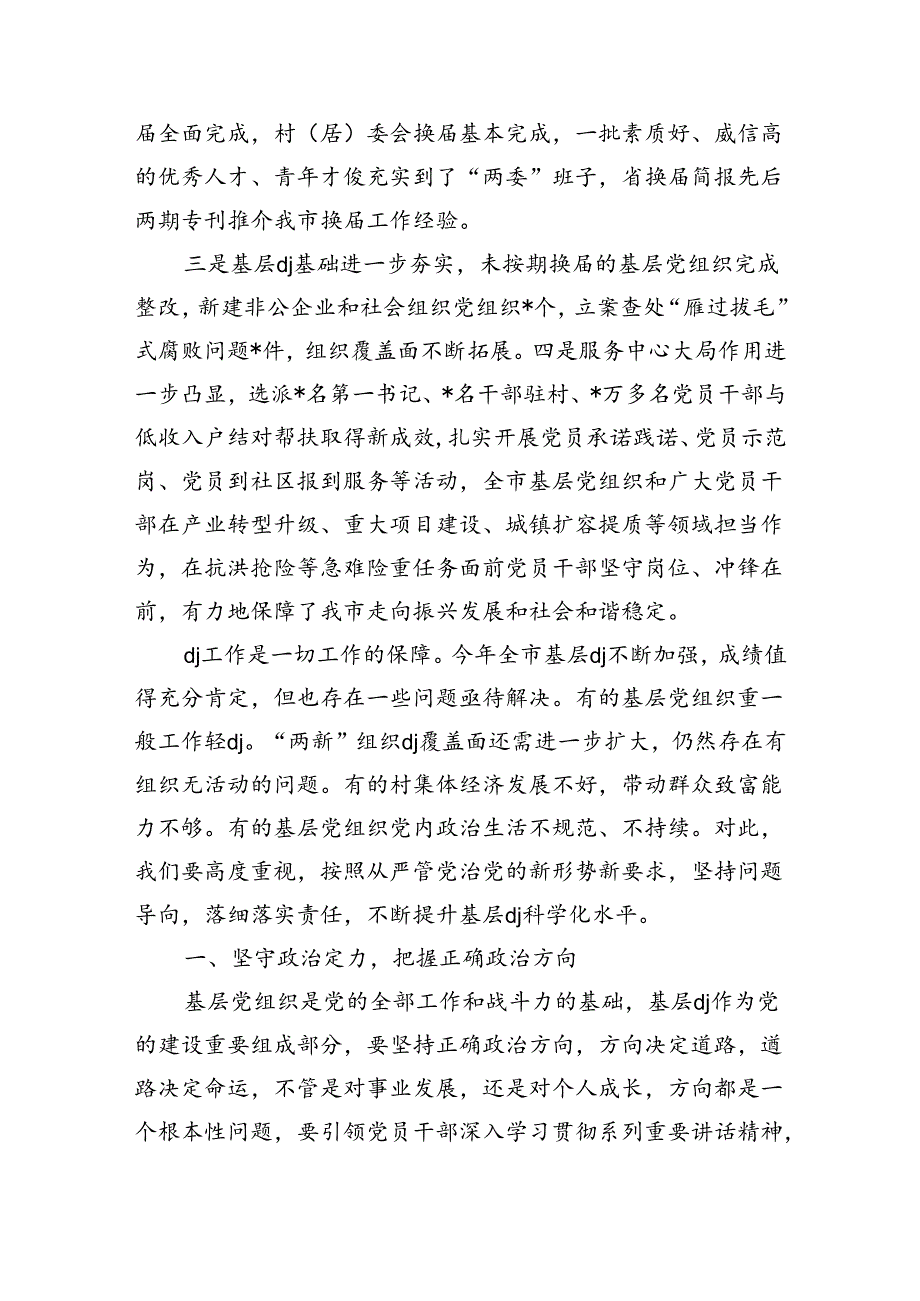 届全面完成，村（居）委会换届基本完成，一批素质好、威信高
的优秀人才、青年才俊充实到了“两委”班子，省换届简报先后
两期专刊推介我市换届工作经验。
三是基层dj基础进一步夯实，未按期换届的基层党组织完成
整改，新建非公企业和社会组织党组织*个，立案查处“雁过拔毛”
式腐败问题*件，组织覆盖面不断拓展。四是服务中心大局作用进
一步凸显，选派*名第一书记、*名干部驻村、*万多名党员干部与
低收入户结对帮扶取得新成效，扎实开展党员承诺践诺、党员示范
岗、党员到社区报到服务等活动，全市基层党组织和广大党员干
部在产业转型升级、重大项目建设、城镇扩容提质等领域担当作
为，在抗洪抢险等急难险重任务面前党员干部坚守岗位、冲锋在
前，有力地保障了我市走向振兴发展和社会和谐稳定。
dj工作是一切工作的保障。今年全市基层dj不断加强，成绩值
得充分肯定，但也存在一些问题亟待解决。有的基层党组织重一
般工作轻dj。“两新”组织dj覆盖面还需进一步扩大，仍然存在有
组织无活动的问题。有的村集体经济发展不好，带动群众致富能
力不够。有的基层党组织党内政治生活不规范、不持续。对此，
我们要高度重视，按照从严管党治党的新形势新要求，坚持问题
导向，落细落实责任，不断提升基层dj科学化水平。
一、坚守政治定力，把握正确政治方向
基层党组织是党的全部工作和战斗力的基础，基层dj作为党
的建设重要组成部分，要坚持正确政治方向，方向决定道路，道
路决定命运，不管是对事业发展，还是对个人成长，方向都是一
个根本性问题，要引领党员干部深入学习贯彻系列重要讲话精神，